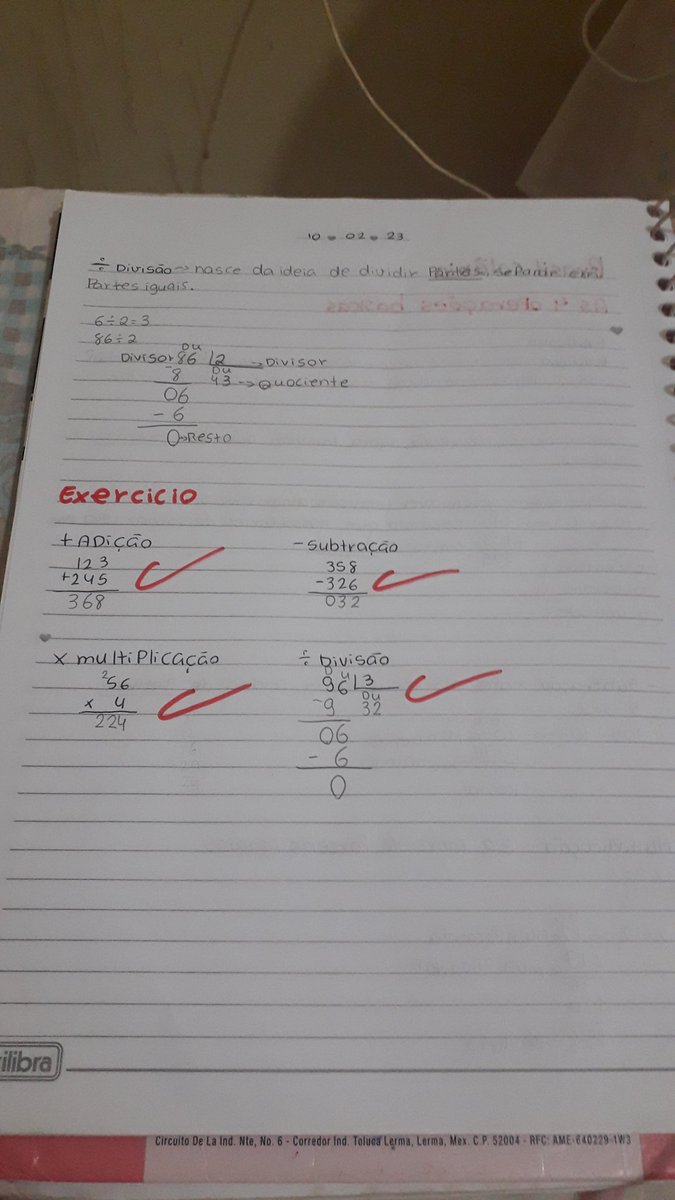 10 • 02 • 23
÷ Divisão → nasce da ideia de dividir Partes, separar em
Partes iguais.
6÷2=3
86÷2
DU
Divisor 86 2 → Divisor
-8 DU
43 → Quociente
06
- 6
0 → Resto
Exercicio
+ Adição
123
+245
368
- Subtração
358
-326
032
x multiplicação
2
56
x 4
224
÷ Divisão
D U
96 3
-9 DU
32
06
- 6
0
As 4 operações basicas
ilibra
Circuito De La Ind. Nte, No. 6 - Corredor Ind. Toluca Lerma, Lerma, Mex. C.P. 52004 - RFC: AME-640229-1W3